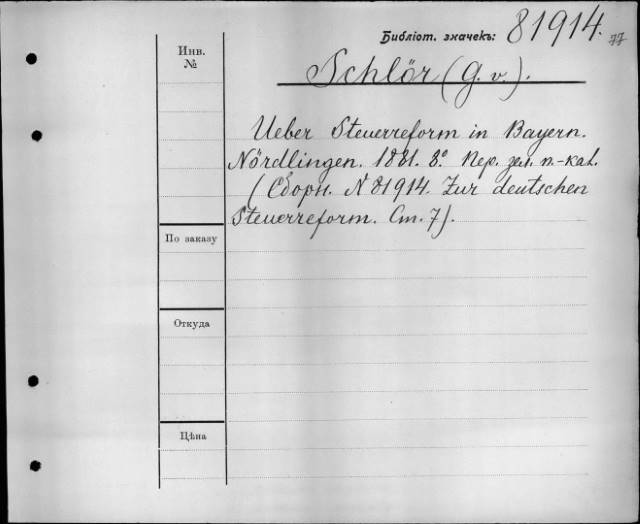 Библіот. значекъ: 81914.
77
Инв.
№
Schlör (G. v.).
Ueber Steuerreform in Bayern.
Nördlingen. 1881. 8° Пер. зел. п-кал.
(Сборн. № 81914. Zur deutschen
Steuerreform. Ст. 7).
По заказу
Откуда
Цѣна